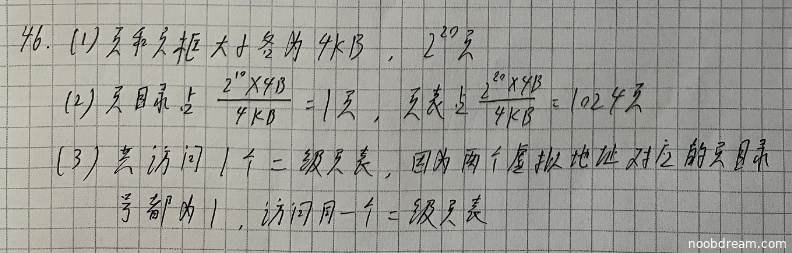 46. (1) 页和页框大小各为 4KB , 2²⁰页
(2) 页目录占 2¹⁰×4B/4KB = 1页, 页表占 2²⁰×4B/4KB = 1024页
(3) 共访问1个二级页表, 因为两个虚拟地址对应的页目录
号都为1, 访问同一个二级页表
noobdream.com